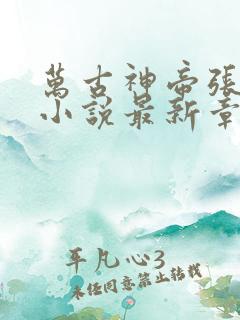 萬古神帝張
小說最新章
平凡心3
未经同意禁止转载